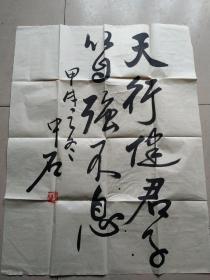 天行健君子
以自強不息
甲戌之冬
中石